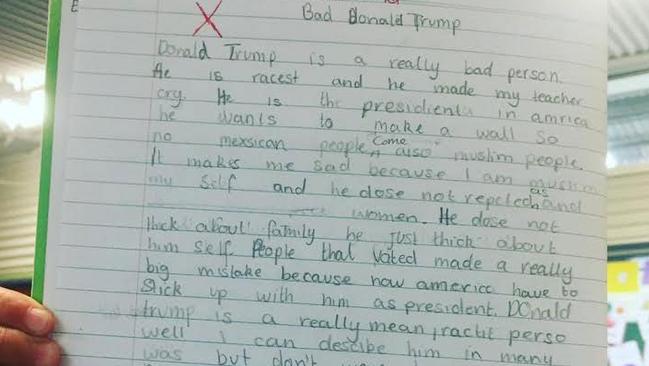 Bad Donald Trump
Donald Trump is a really bad person.
He is racest and he made my teacher
cry. He is the presidient in amrica
he wants to make a wall so
no mexsican people come also muslim people.
It makes me sad because I am muslim
my self and he dose not as
women. He dose not
thick about family he just thick about
him self. People that voted made a really
big mistake because now americe have to
Stick up with him as president. Donald
trump is a really mean, perso
well I can descibe him in many
was but don't